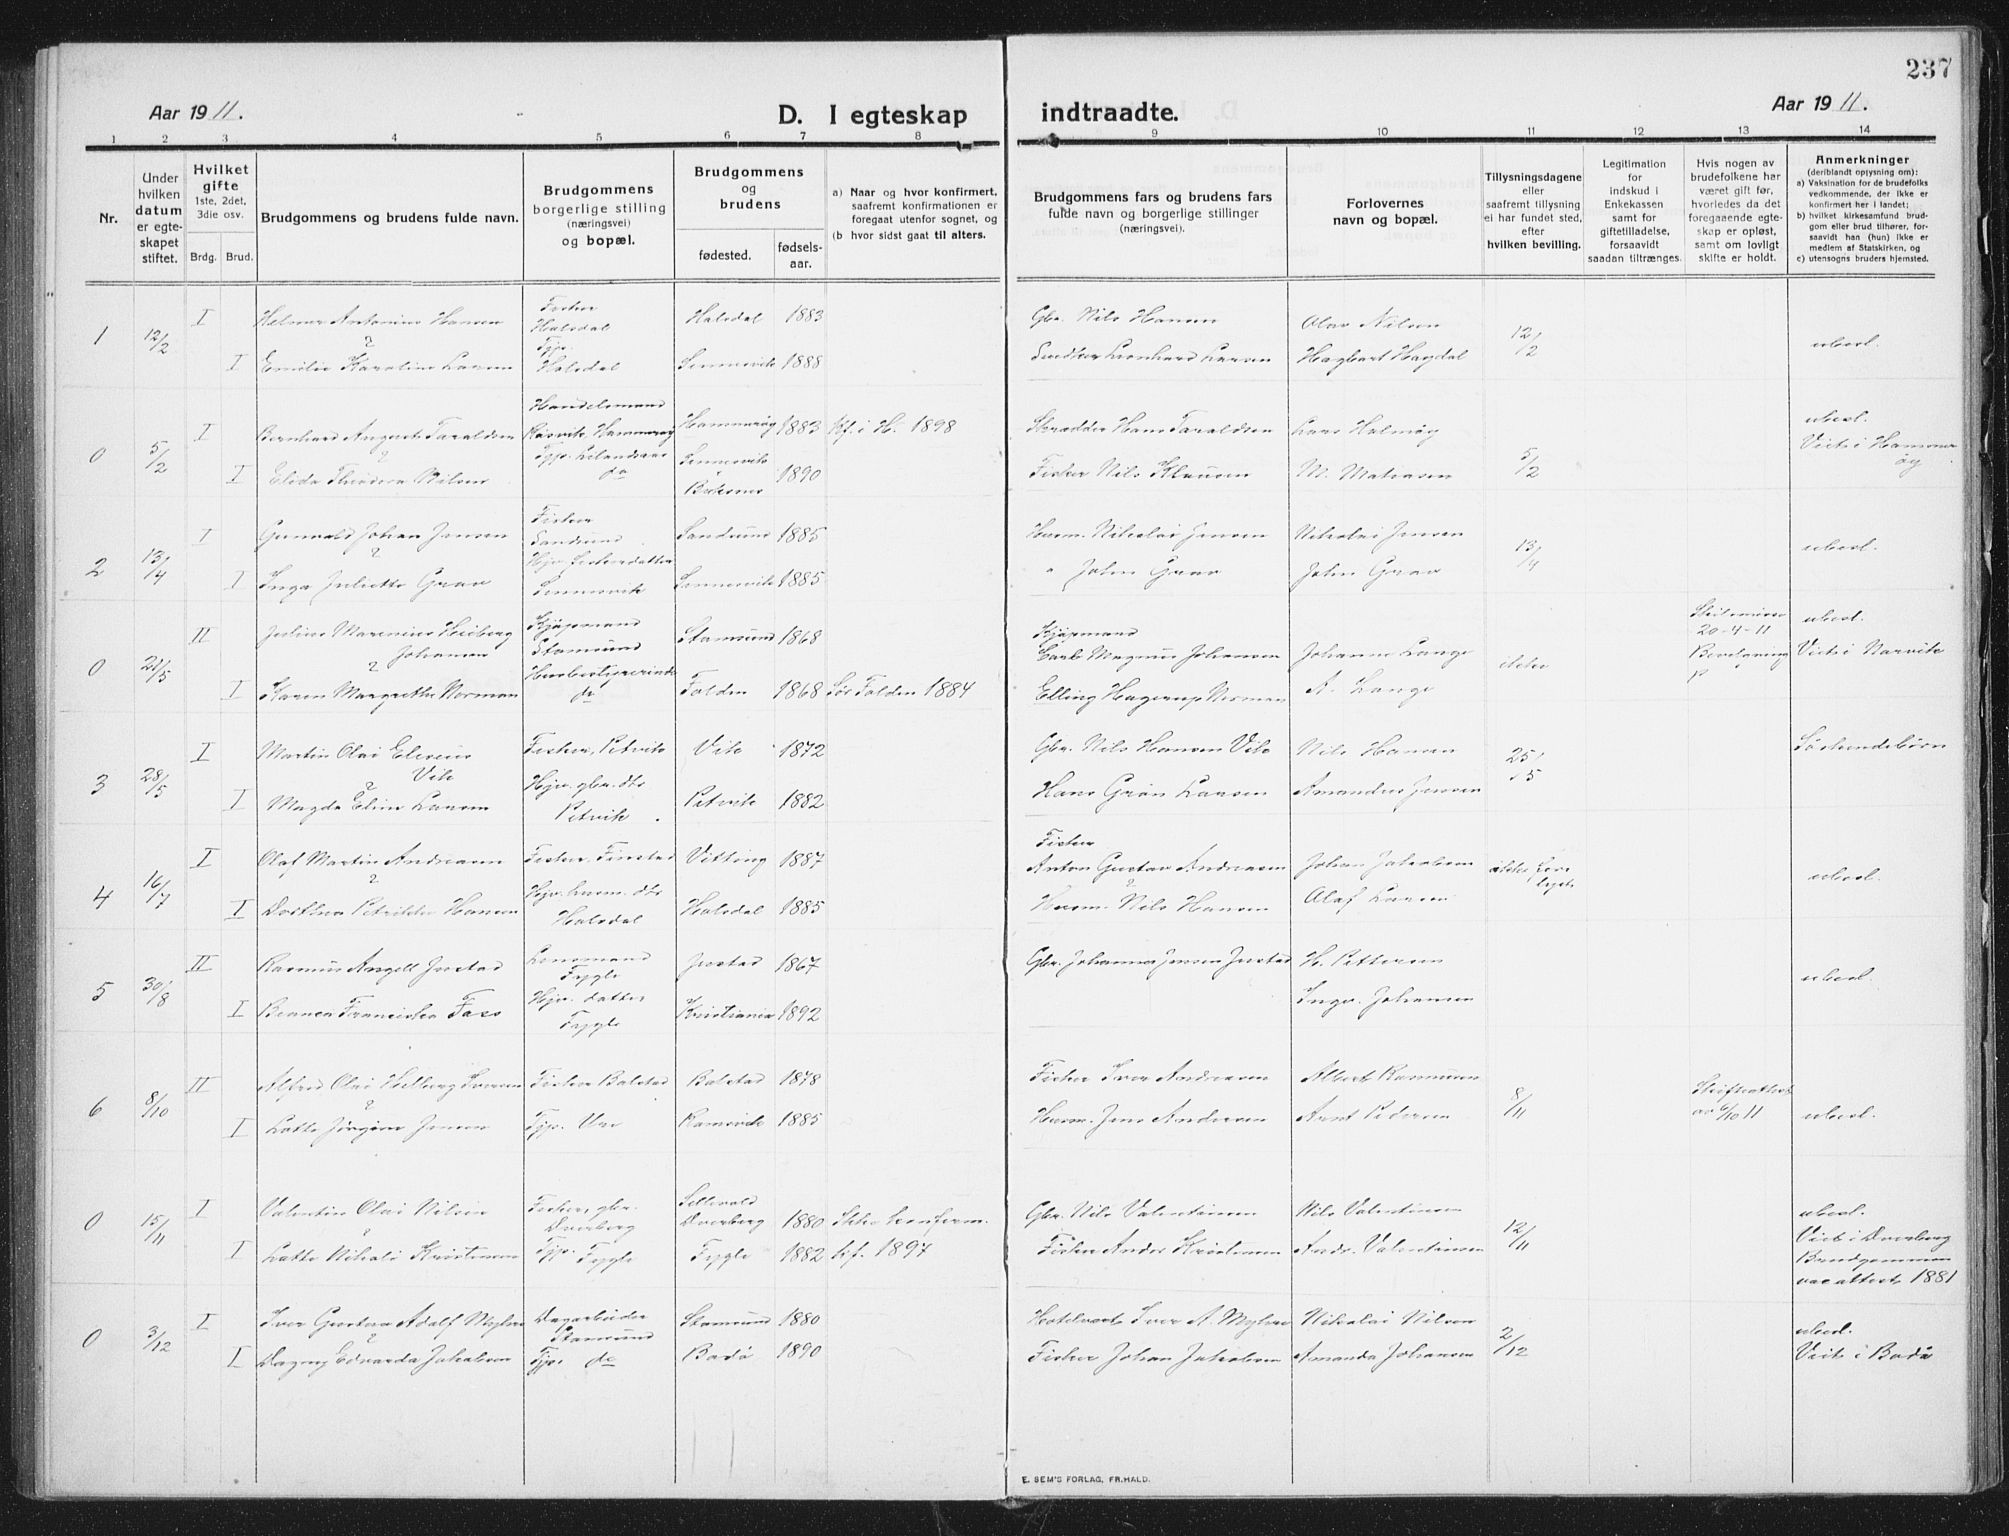 237
Aar 1911.
D. I egteskap indtraadte.
Aar 1911.
1 2 3 4 5 6 7 8 9 10 11 12 13 14
Nr.
Under hvilken datum er egteskapet stiftet.
Hvilket gifte 1ste, 2det, 3die osv.
Brdg. Brud.
Brudgommens og brudens fulde navn.
Brudgommens borgerlige stilling (næringsvei) og bopæl.
Brudgommens og brudens
fødested.
fødselsaar.
a) Naar og hvor konfirmert, saafremt konfirmationen er foregaat utenfor sognet, og
(b hvor sidst gaat til alters.
Brudgommens fars og brudens fars fulde navn og borgerlige stillinger (næringsvei).
Forlovernes navn og bopæl.
Tillysningsdagene eller saafremt tillysning ei har fundet sted, efter hvilken bevilling.
Legitimation for indskud i Enkekassen samt for giftetilladelse, forsaavidt saadan tiltrænges.
Hvis nogen av brudefolkene har været gift før, hvorledes da det foregaaende egteskap er opløst, samt om lovligt skifte er holdt.
Anmerkninger (deriblandt opjysning om):
a) Vaksination for de brudefolks vedkommende, der ikke er konfirmert her i landet;
b) hvilket kirkesamfund brudgom eller brud tilhører, forsaavidt han (hun) ikke er medlem af Statskirken, og
c) utensogns bruders hjemsted.
1 12/2 I Helmer Antonius Hansen Fisker Halsdal Halsdal 1883 Gbr. Nils Hansen Olav Nilsen 12/2 ubesl.
I Emilie Karoline Larsen Tjp. Halsdal Sennesvik 1888 Leonhard Larsen Hagbart Hagdal
0 5/2 I Bernhard August Taraldsen Handelsmand Hammerøy Hammerøy 1883 kf. i H. 1898 Skrædder Hans Taraldsen Lars Halmøy 5/2 ubesl. Viet i Hammerøy
I Elida Theodora Nilsen Tjp. do Sennesvik Buksnes 1890 Fisker Nils Klausen M. Matiasen
2 13/4 I Gunvald Johan Jensen Fisker Sandsund Sandsund 1885 Husm. Nikolai Jensen Nikolai Jensen 13/4 ubesl.
I Inga Juliette Grav Hjv. Fiskerdatter Sennesvik Sennesvik 1885 " John Grav John Grav
0 21/5 II Julius Marenius Heiberg Johansen Kjøpmand Stamsund Stamsund 1868 Kjøpmand Carl Magnus Johansen Johanne Lange 20-4-11 ubesl. Viet i Narvik
I Karen Margrethe Norman Husbestyrerinde do Folden 1868 Sør Folden 1884 Elling Hagerup Norman A. Lange
3 28/5 I Martin Olai Elesius Vik Fisker, Petvik Vik 1872 Gbr. Nils Hansen Vik Nils Hansen 25/5 Søskendebørn
I Magda Eline Larsen Hjv. gbr. dtr Petvik Petvik 1882 Hans Grøn Larsen Amandus Jensen
4 16/7 I Olaf Martin Andreasen Fisker. Finstad Vitting 1887 Fisker Anton Gustav Andreasen Johan Jakobsen ubesl.
I Dorthea Petrikke Hansen Hjv. husm. dtr Halsdal Halsdal 1885 Husm. Nils Hansen Olaf Larsen
5 30/8 II Rasmus Angell Justad Lensmand Fygle Justad 1867 Gbr. Johannes Jensen Justad H. Pettersen ubesl.
I Bianca Franciska Foss Hjv. datter Fygle Kristiania 1892 Ingv. Johansen
6 8/10 II Alfred Olai Helberg Iversen Fisker Balstad Balstad 1878 Fisker Iver Andreasen Albert Rasmussen 8/11 Skifteattest av 6/10 11 ubesl.
I Lotte Jørgine Jensen Tjp. Ure Ramsvik 1885 Husm. Jens Andersen Arnt Pedersen
0 15/11 I Valentin Olai Nilsen Fisker, gbr. Dverberg Dverberg 1880 Ikke konfirm. Gbr. Nils Valentinsen Nils Valentinsen 12/11 ubesl. Viet i Dverberg
I Lotte Nikoli Kristensen Tjp. Fygle Fygle 1882 kf. 1897 Fisker Anders Kristensen Andr. Valentinsen Brudgommen vac.attest 1881
0 3/12 I Iver Gustav Adolf Myhre Dagarbeider Stamsund Stamsund 1880 Hotelvert Iver A. Myhre Nikolai Nilsen 2/12 ubesl. Viet i Bodø
I Dagny Edvarda Jakobsen Tjp. do Bodø 1890 Fisker Johan Jakobsen Amanda Johansen
E. SEM'S FORLAG, FR.HALD.